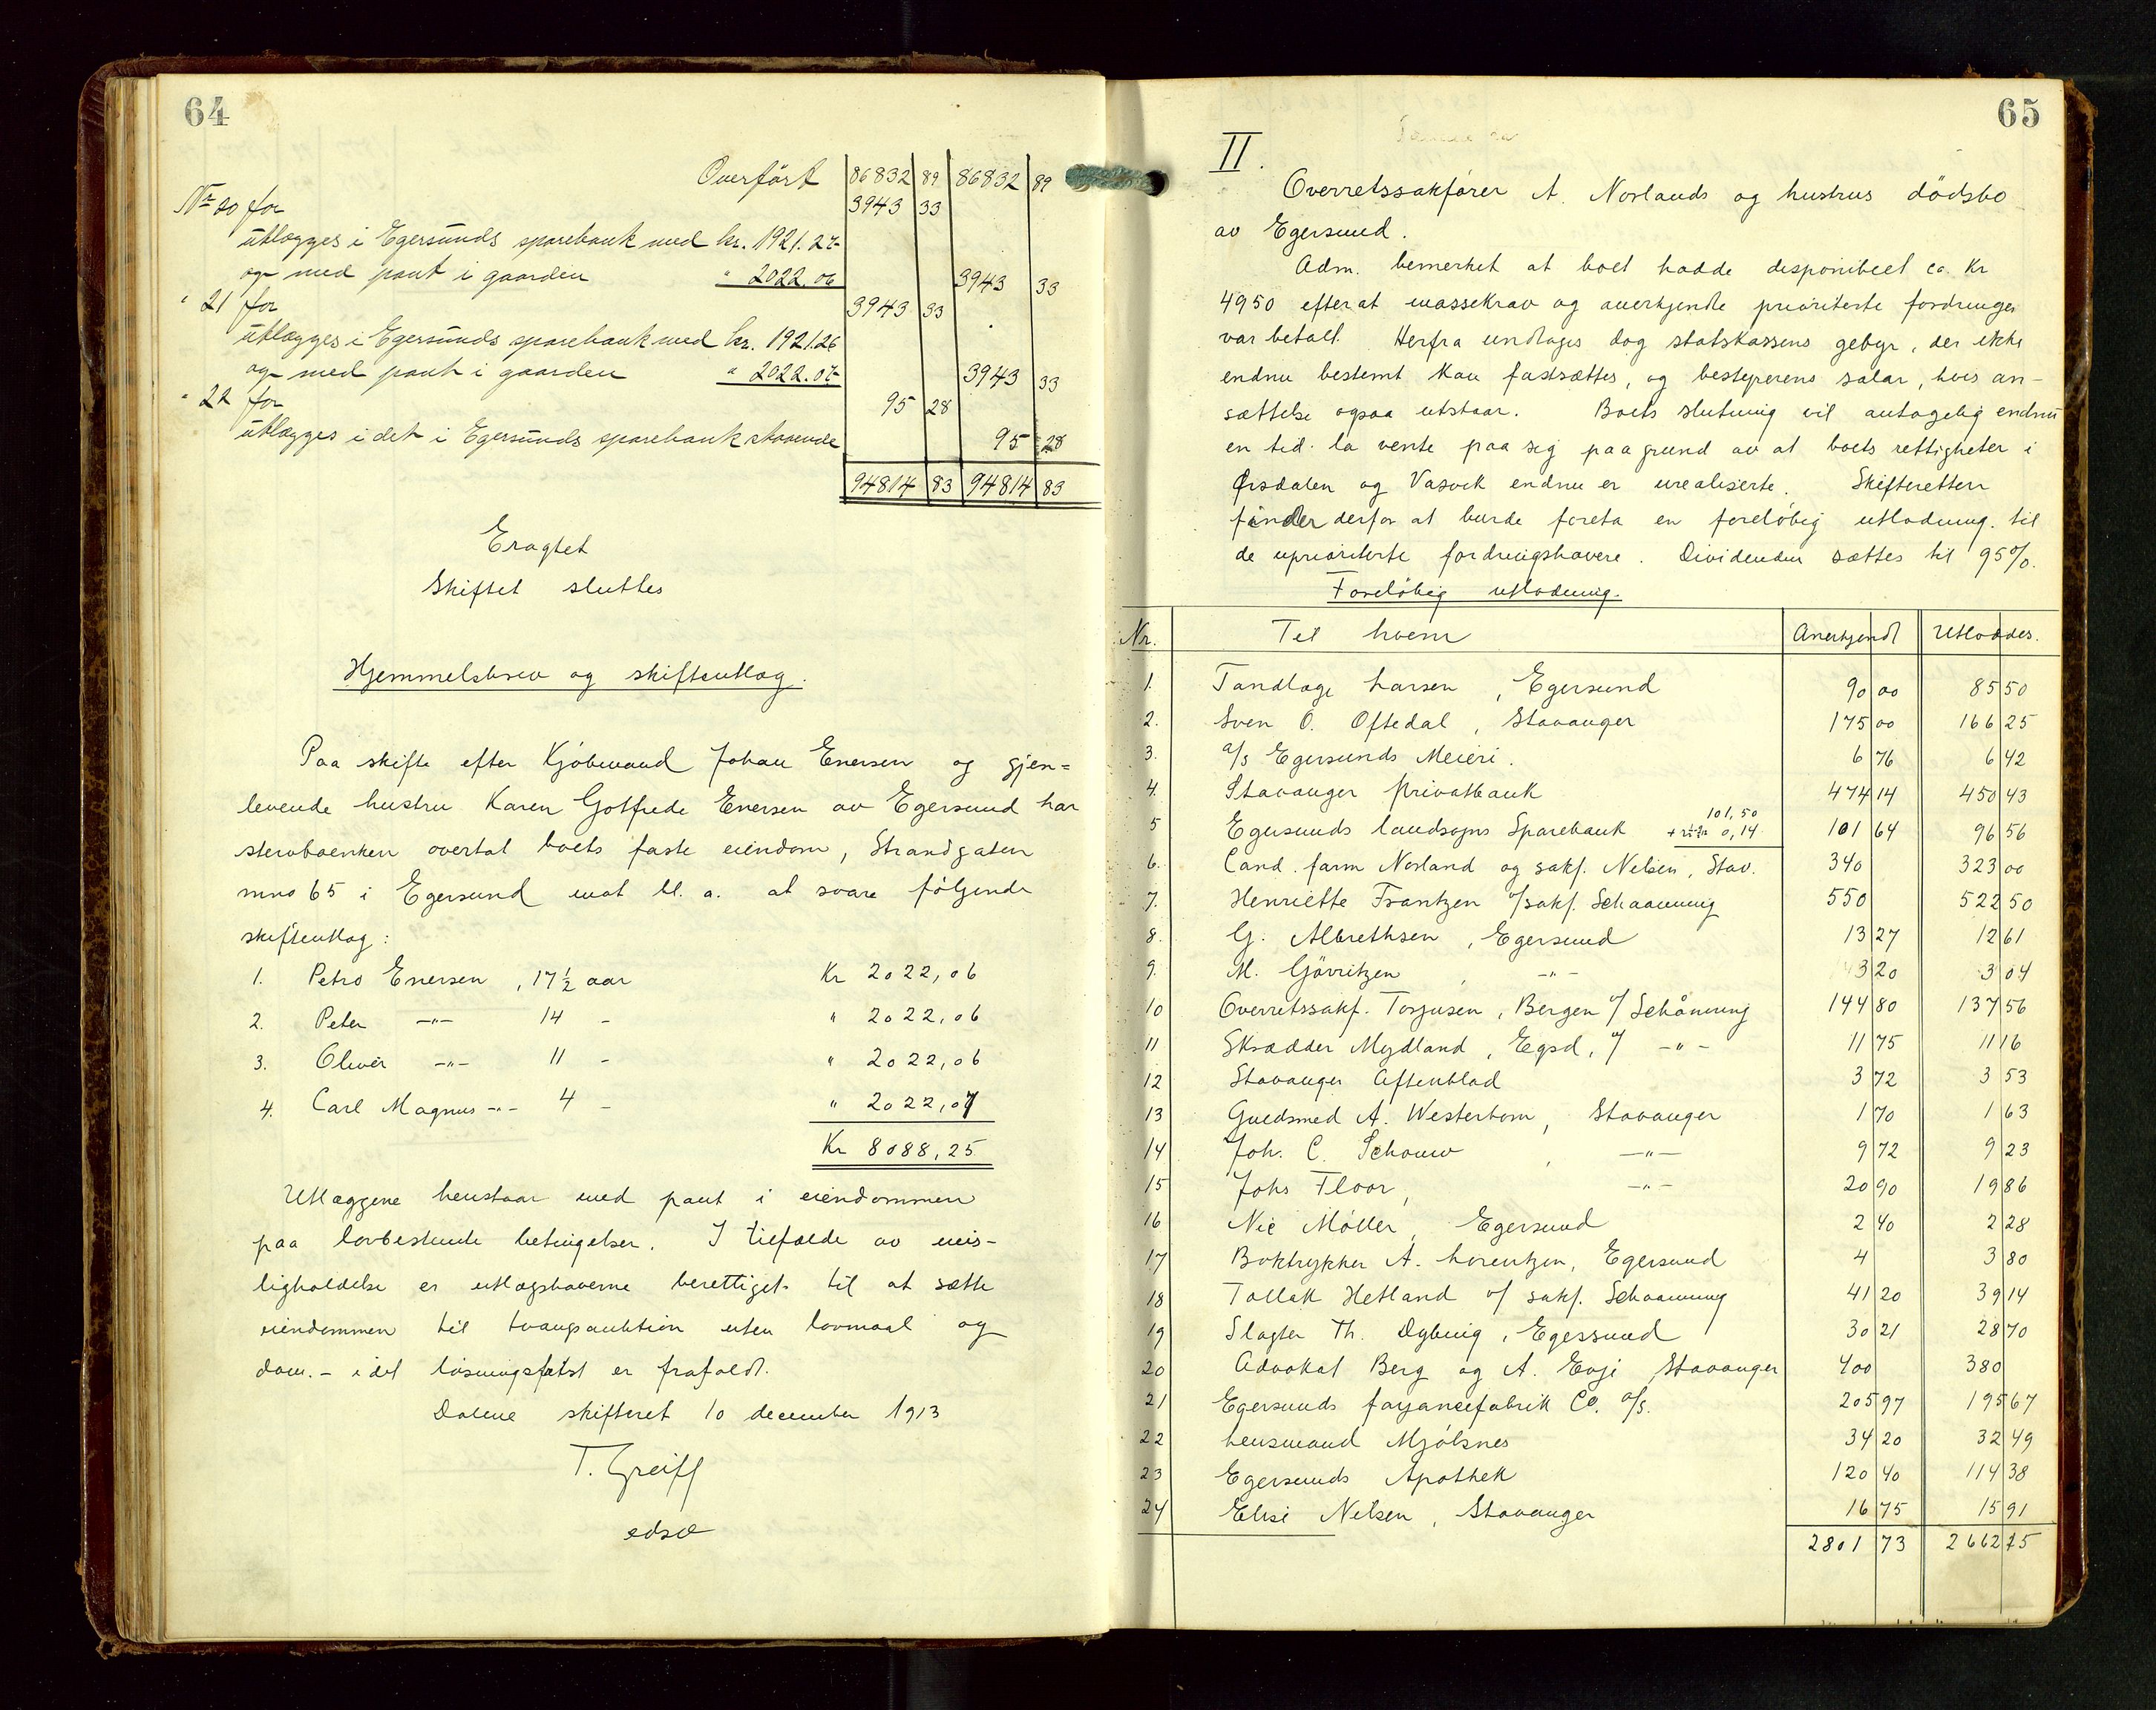 64
Overført 86832 89 86832 89
No 20 for 3943 33
utlægges i Egersunds sparebank med kr. 1921.27
og med pant i gaarden " 2022.06 3943 33
" 21 for 3943 33
utlægges i Egersunds sparebank med kr. 1921.26
og med pant i gaarden " 2022.07 3943 33
" 22 for 95 28
utlægges i det i Egersunds sparebank staaende 95 28
94814 83 94814 83
Eragtet
Skiftet sluttes
Hjemmelsbrev og skifteutlæg.
Paa skifte efter Kjøbmand Johan Enersen og gjen=
levende hustru Karen Gotfrede Enersen av Egersund har
stervboenken overtat boets faste eiendom, Strandgaten
mno 65 i Egersund mot bl. a. at svare følgende
skifteutlæg:
1. Petro Enersen, 17 1/2 aar Kr 2022,06
2. Peter -"- 14 - " 2022,06
3. Oliver -"- 11 - " 2022,06
4. Carl Magnus -"- 4 - " 2022,07
Kr 8088,25
Utlæggene henstaar med pant i eiendommen
paa lovbestemte betingelser. I tilfælde av mis-
ligholdelse er utlægshaverne berettiget til at sætte
eiendommen til tvangsauktion uten lovmaal og
dom. - idet løsningsfrist er frafaldt.
Dalene skifteret 10 december 1913
T. Greiff
edsv
65
II.
Overretssakfører A. Norlands og hustrus dødsbo
av Egersund.
Adm. bemerket at boet hadde disponibelt ca. Kr
4950 efterat massekrav og anerkjendte prioriterte fordringer
var betalt. Herfra undtages dog statskassens gebyr, der ikke
endnu bestemt kan fastsættes, og bestyrerens salær, hvis an-
sættelse ogsaa utstaar. Boets slutning vil antagelig endnu
en tid la vente paa sig paa grund av at boets rettigheter i
Ørsdalen og Vasvik endnu er urealiserte. Skifteretten
finder derfor at burde foreta en foreløbig utlodning til
de uprioriterte fordringshavere. Dividenden sættes til 95%.
Foreløbig utlodning.
Nr. Til hvem Anerkjendt Utloddes.
1. Tandlæge Larsen, Egersund 90 00 85 50
2. Sven O. Oftedal, Stavanger 175 00 166 25
3. a/s Egersunds Meieri. 6 76 6 42
4. Stavanger Privatbank 474 14 450 43
101,50
5 Egersunds landsogns Sparebank + 0,14 101 64 96 56
6. Cand. farm Norland og sakf. Nelsen, Stav. 340 323 00
7. Henriette Frantzen v/sakf. Schaanning 550 522 50
8. G. Albrethsen, Egersund 13 27 12 61
9. M. Gövritzen, -"- 3 20 3 04
10 Overretssakf. Torjusen, Bergen v/ Schånning 144 80 137 56
11 Skrædder Mydland, Egsd, v/ -"- 11 75 11 16
12 Stavanger Aftenblad 3 72 3 53
13 Guldsmed A. Westerbom, Stavanger 1 70 1 63
14 Joh. C. Schouw, -"- 9 72 9 23
15 Johs Floor, -"- 20 90 19 86
16 Nic Møller, Egersund 2 40 2 28
17 Boktrykker A. Lorentzen, Egersund 4 3 80
18 Tollak Hetland v/ sakf. Schaanning 41 20 39 14
19 Slagter Th. Dybing, Egersund 30 21 28 70
20 Advokat Berg og A. Evje Stavanger 400 380
21 Egersunds fayancefabrik Co. a/s. 205 97 195 67
22 Lensmand Mjølsnes 34 20 32 49
23 Egersunds Apothek 120 40 114 38
24 Elise Nelsen, Stavanger 16 75 15 91
2801 73 2662 75